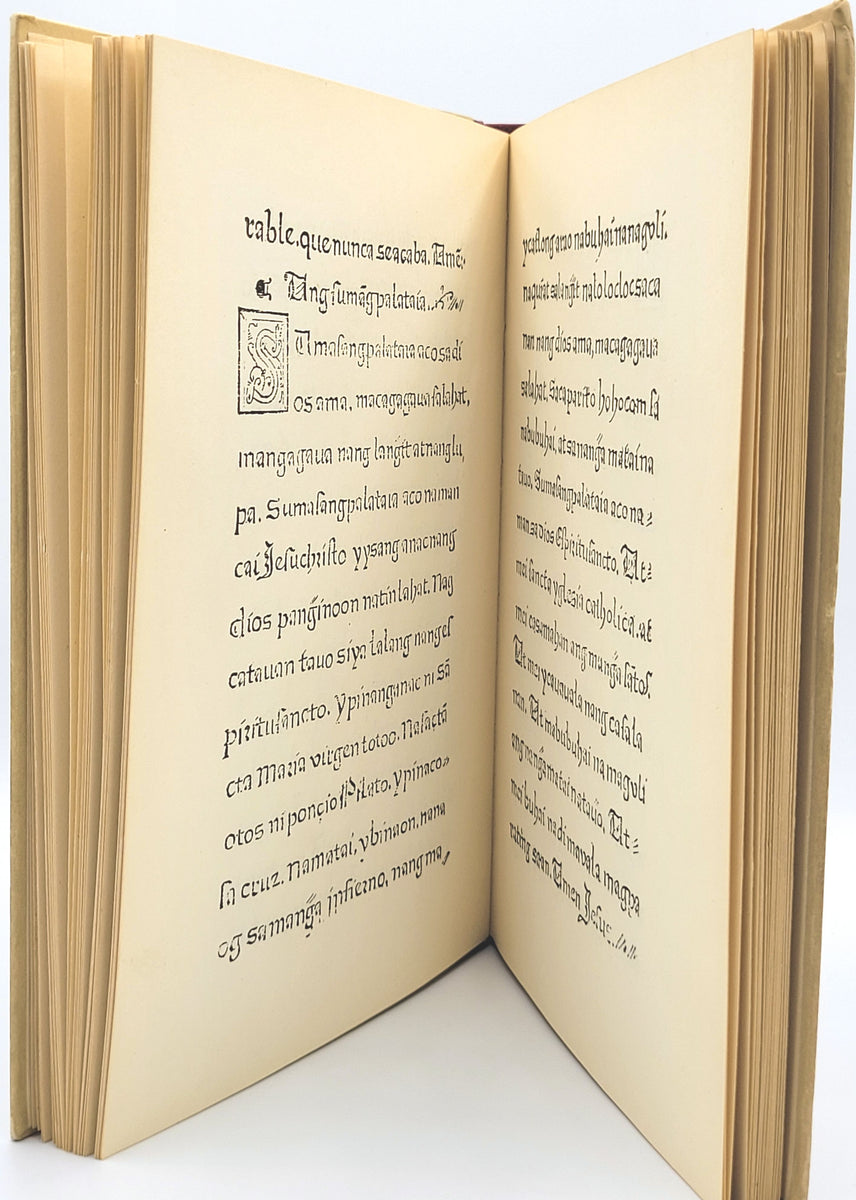 rable. que nunca se acaba. Amē.
Ang sumāgpalataia.
SUmasangpalataia aco sa di
os ama, macagagaua salahat,
mangagaua nang langit at nang lu,
pa. Sumasangpalataia aco naman
cai Jesuchristo yysang anac nang
dios panginoon natin lahat. Nag
catauan tauo siya lalang nang es
piritu sancto. ypinanganac ni Sā
cta Maria virgen totoo. Nasactā
otos ni poncio Pilato. ypinaco
sa cruz. Namatai, ybinaon. nana
og sa manḡa jnfierno, nang ma
ycatlong arao nabuhai nanaguli.
naquiat sa langit nalolocloc sa ca
nan nang dios ama, macagagaua
salahat. Sacaparito hohocom sa
nabubuhai, at sa nanḡa matai na
tauo. Sumasangpalataia aco na
man sa dios Espiritusancto. At
mei sancta yglesia catholica. at
mei casamahan ang manḡa sātos.
At mei ycauauala nang casala
nan. At mabubuhai na maguli
ang nanḡa matai na tauo. At
mei buhai na di mauala magpa
rating sean. Amen Jesus.